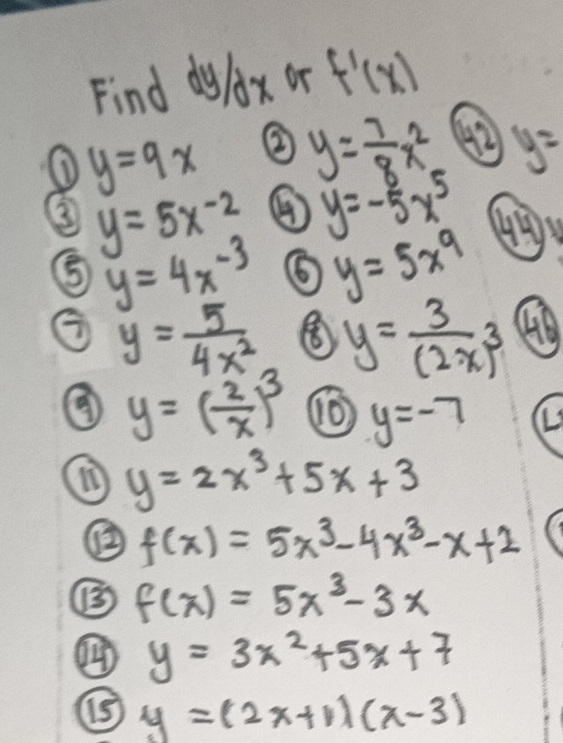 Find dy/dx or f'(x)
① y=9x ② y=7/8 x² ㊷ y=
③ y=5x⁻² ④ y=-5x⁵ ㊹ y
⑤ y=4x⁻³ ⑥ y=5x⁹
⑦ y=5/4x² ⑧ y=3/(2x)³ ㊻
⑨ y=(2/x)³ ⑩ y=-7
⑪ y=2x³+5x+3
⑫ f(x)=5x³-4x³-x+2
⑬ f(x)=5x³-3x
⑭ y=3x²+5x+7
⑮ y=(2x+1)(x-3)